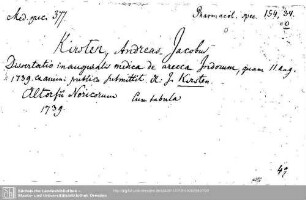 Med. spec. 377.
Pharmacol. spec. 154, 34.
Kirsten, Andreas Jacobus
Dissertatio inauguralis medica de areca Indorum, quam 11 aug.
1739. examini publico submittit A. J. Kirsten.
Altorfii Noricorum Cum tabula
1739.
49
Sächsische Landesbibliothek -
Staats- und Universitätsbibliothek Dresden